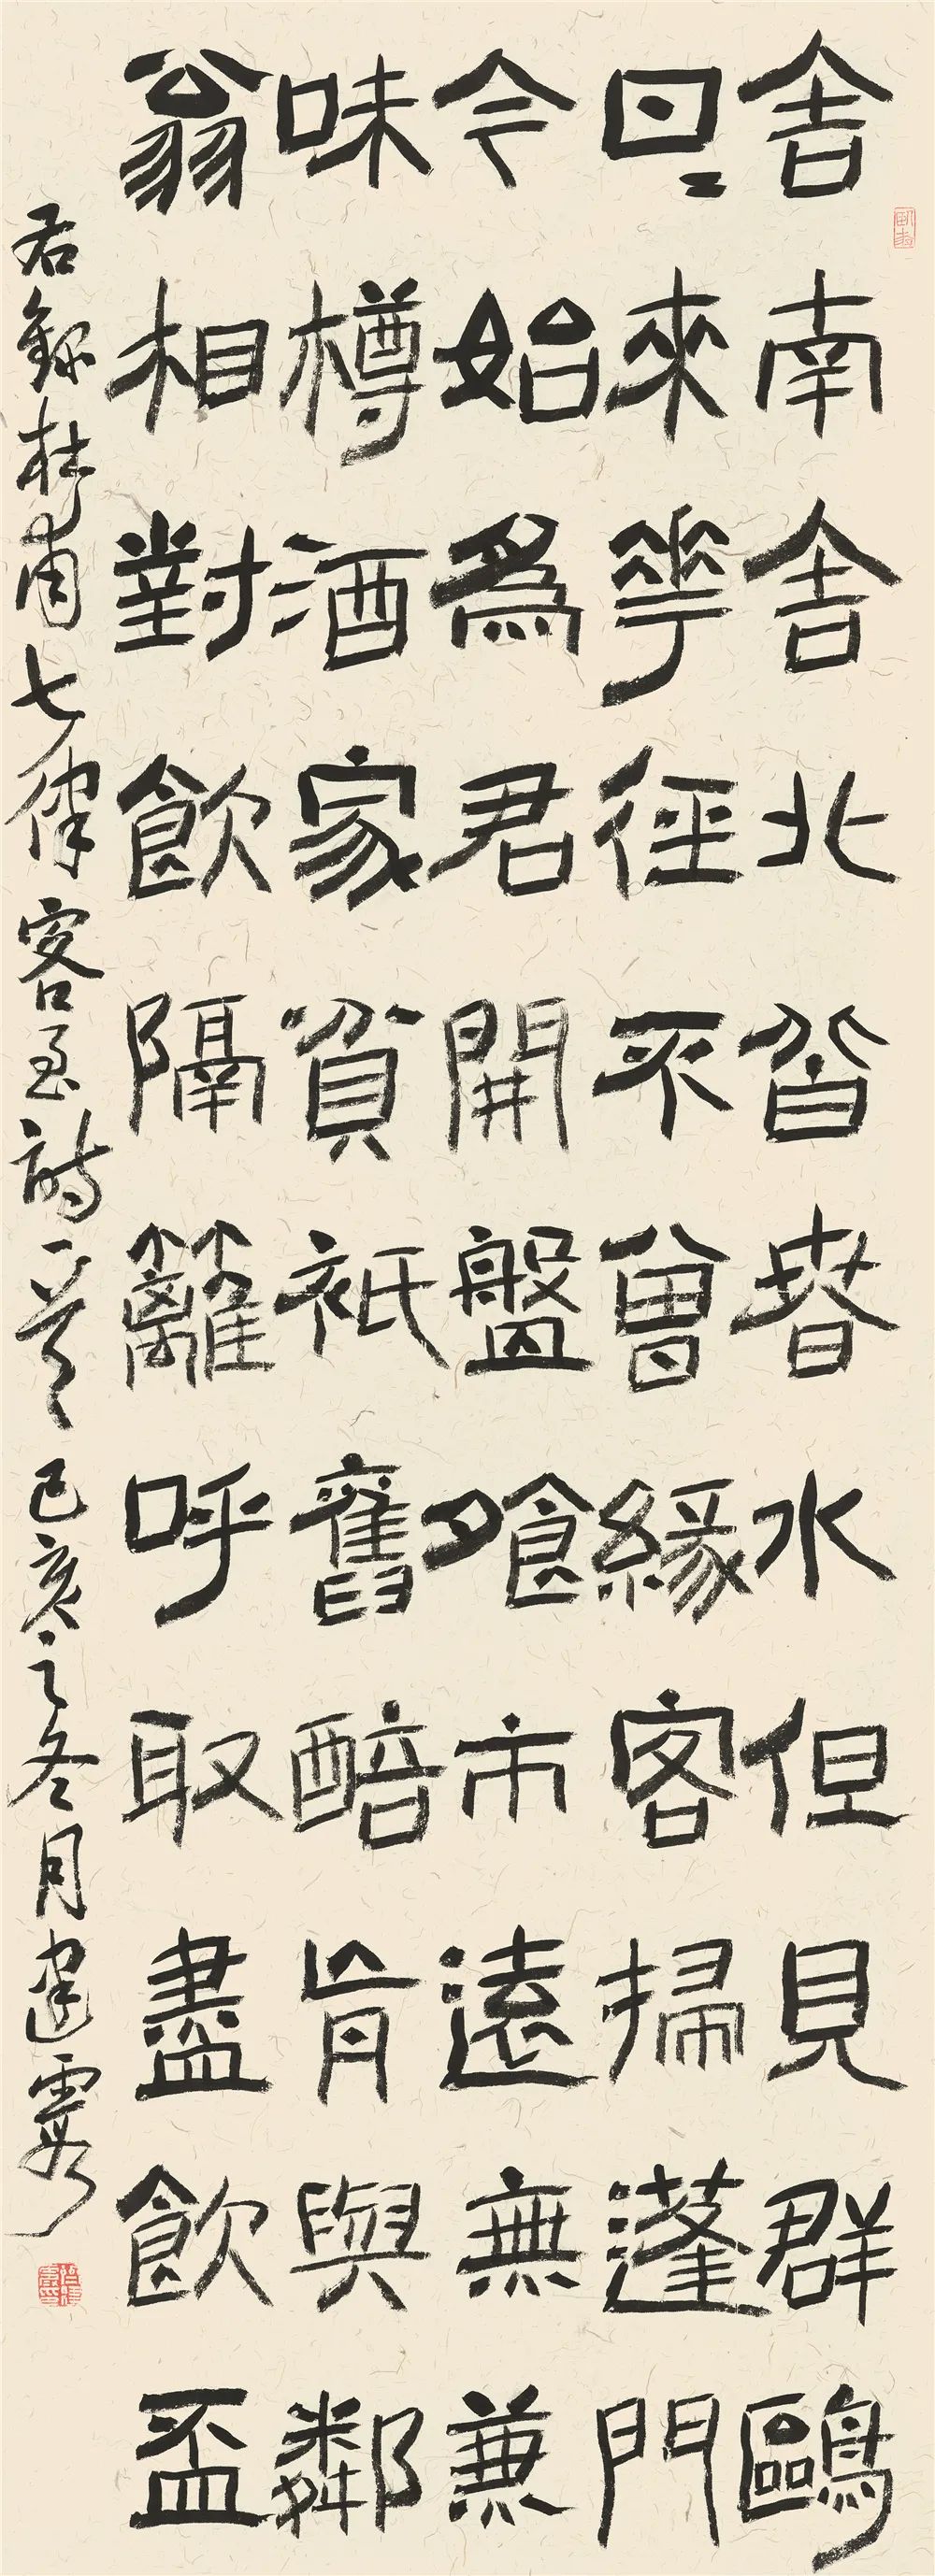 舍南舍北皆春水但見群鷗
日〻來華徑不曾緣客掃蓬門
今始爲君開盤飧市遠無兼
味樽酒家貧衹舊醅肯與鄰
翁相對飲隔籬呼取盡飲盃
右錄杜甫七律客至詩一首己亥之冬月建霞